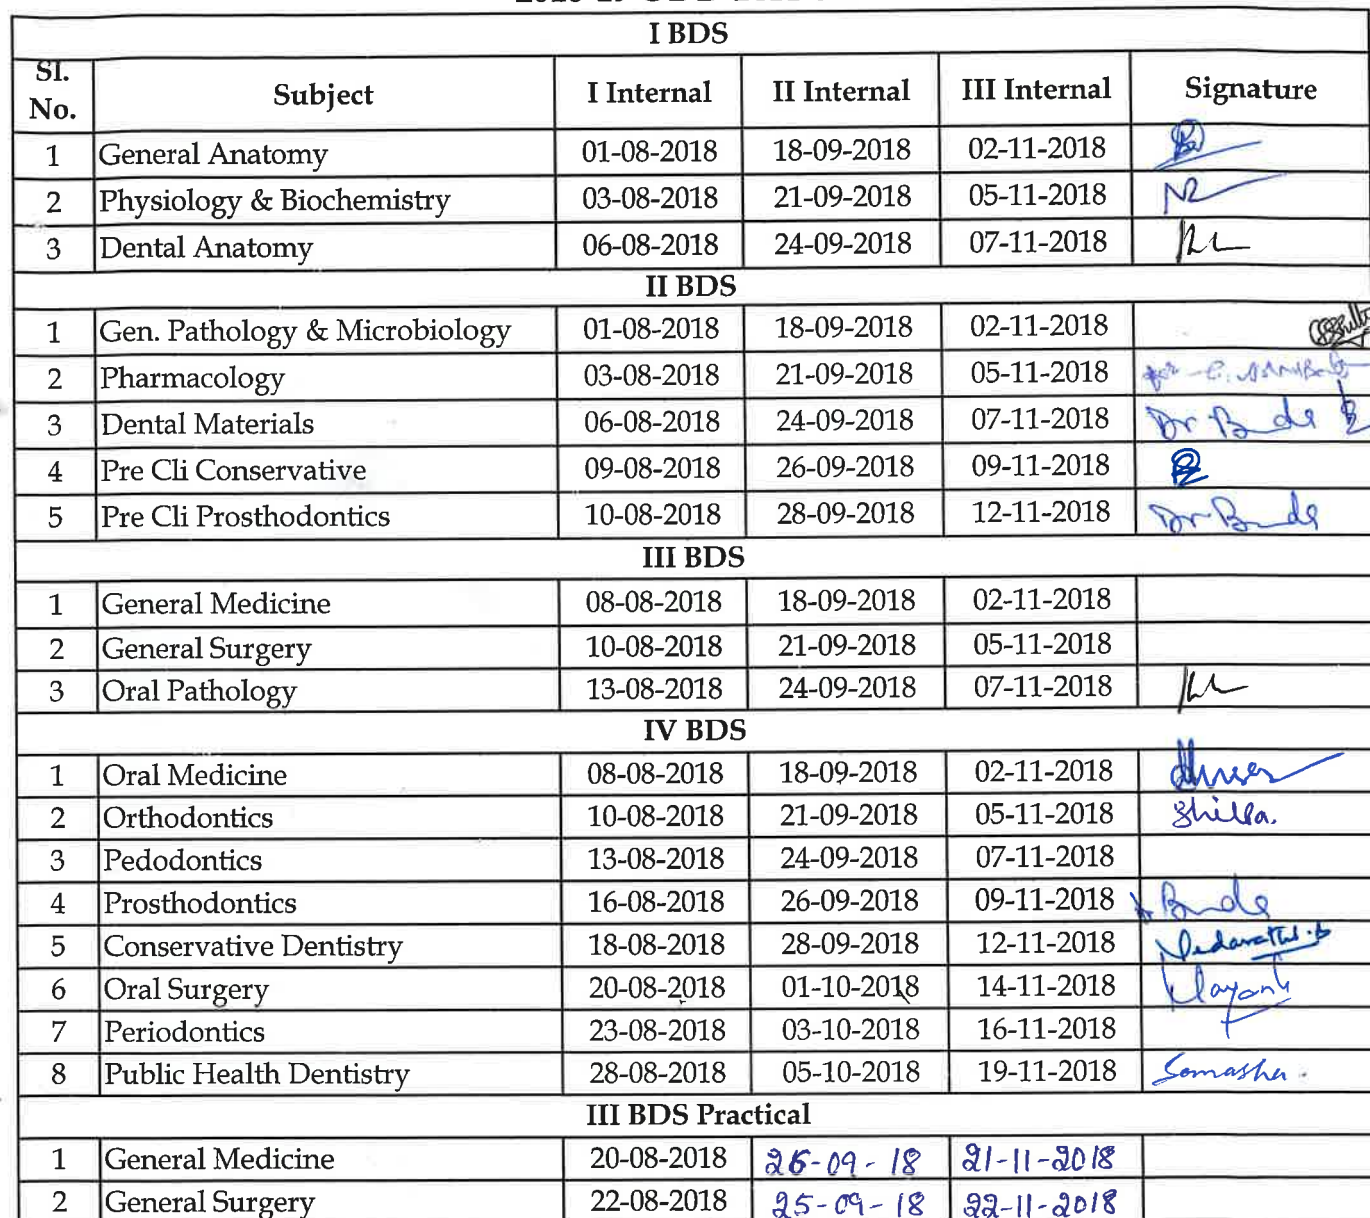 I BDS
Sl. No. Subject I Internal II Internal III Internal Signature
1 General Anatomy 01-08-2018 18-09-2018 02-11-2018
2 Physiology & Biochemistry 03-08-2018 21-09-2018 05-11-2018
3 Dental Anatomy 06-08-2018 24-09-2018 07-11-2018
II BDS
1 Gen. Pathology & Microbiology 01-08-2018 18-09-2018 02-11-2018
2 Pharmacology 03-08-2018 21-09-2018 05-11-2018
3 Dental Materials 06-08-2018 24-09-2018 07-11-2018 Dr
4 Pre Cli Conservative 09-08-2018 26-09-2018 09-11-2018
5 Pre Cli Prosthodontics 10-08-2018 28-09-2018 12-11-2018 Dr
III BDS
1 General Medicine 08-08-2018 18-09-2018 02-11-2018
2 General Surgery 10-08-2018 21-09-2018 05-11-2018
3 Oral Pathology 13-08-2018 24-09-2018 07-11-2018
IV BDS
1 Oral Medicine 08-08-2018 18-09-2018 02-11-2018
2 Orthodontics 10-08-2018 21-09-2018 05-11-2018
3 Pedodontics 13-08-2018 24-09-2018 07-11-2018
4 Prosthodontics 16-08-2018 26-09-2018 09-11-2018
5 Conservative Dentistry 18-08-2018 28-09-2018 12-11-2018
6 Oral Surgery 20-08-2018 01-10-2018 14-11-2018
7 Periodontics 23-08-2018 03-10-2018 16-11-2018
8 Public Health Dentistry 28-08-2018 05-10-2018 19-11-2018
III BDS Practical
1 General Medicine 20-08-2018 26-09-18 21-11-2018
2 General Surgery 22-08-2018 25-09-18 22-11-2018